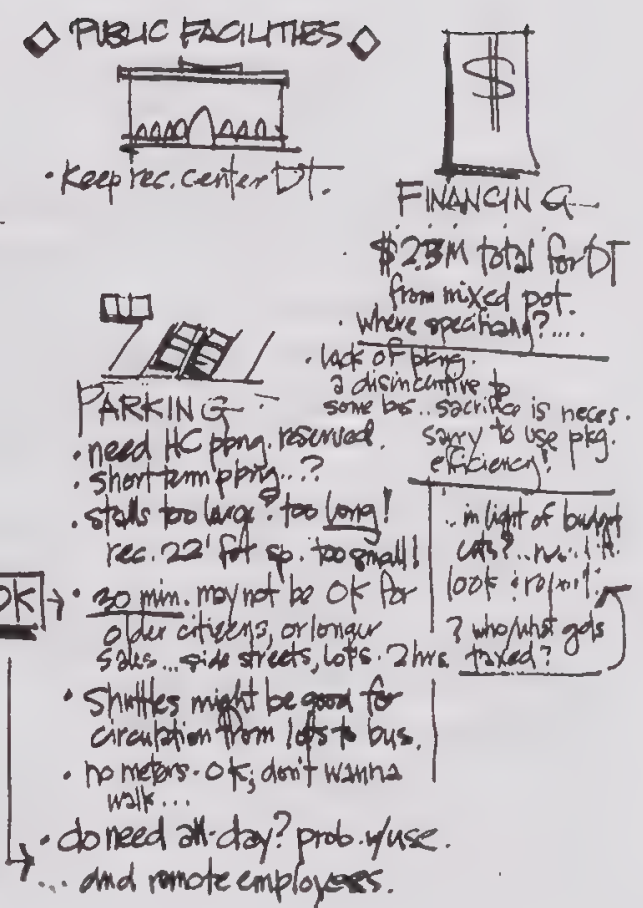 PUBLIC FACILITIES
• Keep rec. center DT.
$
FINANCING
$2.3M total for DT
from mixed pot.
• where specifically?....
• lack of pkng.
a disincentive to
some bus.. sacrifice is neces-
sarry to use pkg.
efficiency!
.. in light of budget
cuts?..
look
? who/what gets
taxed?
PARKING
• need HC ppng. reserved.
• short term ppng...?
• stalls too large? too long!
rec. 22' for sp. too small!
OK → • 30 min. may not be OK for
older citizens, or longer
sales... side streets, lots. 2hrs.
• Shuttles might be good for
circulation from lots to bus.
• no meters - OK; don't wanna
walk...
• do need all-day? prob. w/use.
... and remote employees.